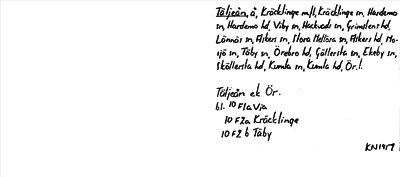 Täljeån, å, Kräcklinge m fl, Kräcklinge sn, Hardemo
sn, Hardemo hd, Viby sn, Hackvads sn, Grimstens hd,
Lännäs sn, Askers sn, Stora Mellösa sn, Askers hd, Mo-
sjö sn, Täby sn, Örebro hd, Gällersta sn, Ekeby sn,
Sköllersta hd, Kumla sn, Kumla hd, Ör. l.
Täljeån ek Ör.
bl. 10 F1a Via
10 F2a Kräcklinge
10 F2 b Täby
KN1959